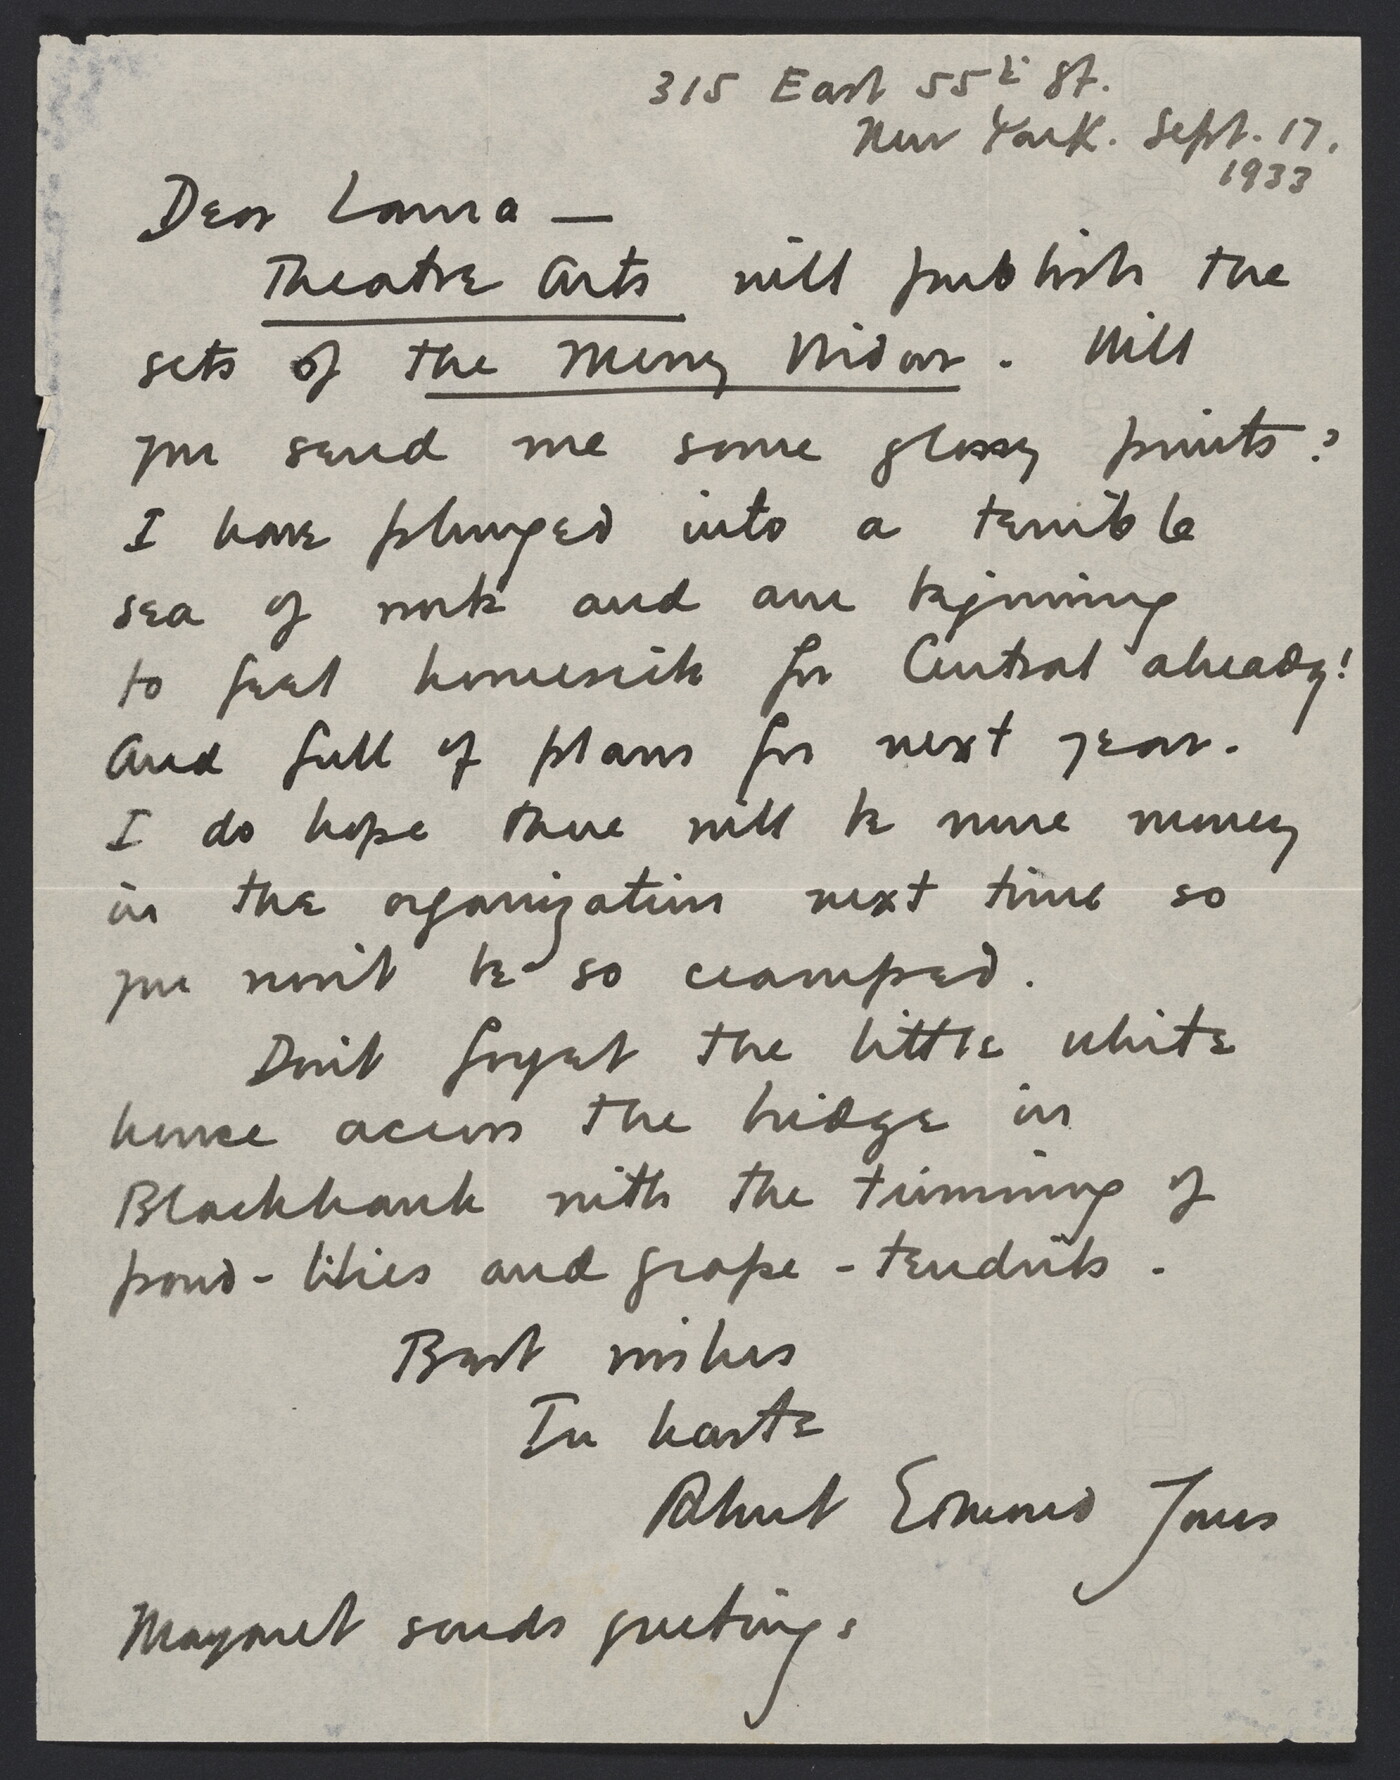 315 East 55th St.
New York. Sept. 17,
1933
Dear Laura —
Theatre Arts will publish the
sets of the Merry Widow. Will
you send me some glossy prints?
I have plunged into a terrible
sea of work and am beginning
to feel homesick for Central already!
And full of plans for next year.
I do hope there will be more money
in the organization next time so
you won't be so cramped.
Don't forget the little white
house across the bridge in
Blackhawk with the trimming of
pond-lilies and grape-tendrils.
Best wishes
In haste
Robert Edmond Jones
Margaret sends greetings